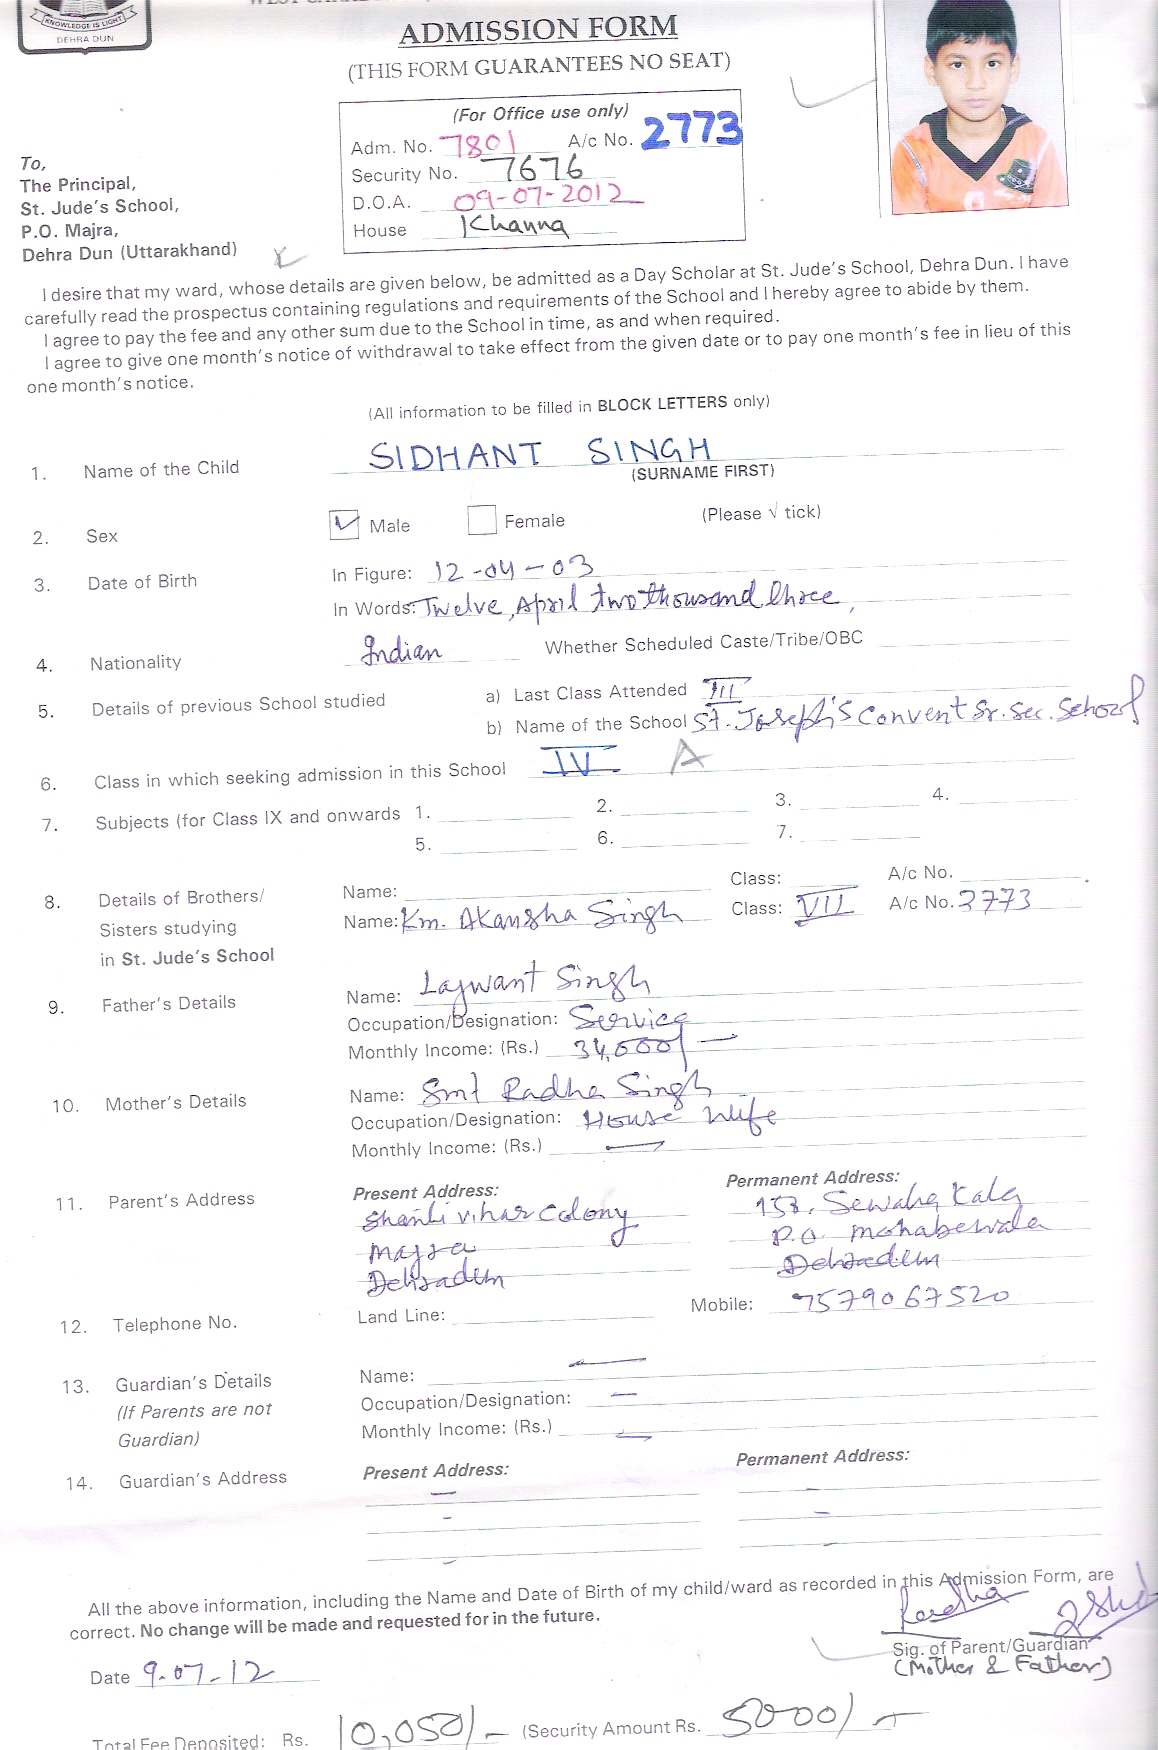 KNOWLEDGE IS LIGHT
DEHRA DUN
ADMISSION FORM
(THIS FORM GUARANTEES NO SEAT)
(For Office use only)
Adm. No. 7801 A/c No. 2773
Security No. 7676
D.O.A. 09-07-2012
House Khanna
To,
The Principal,
St. Jude's School,
P.O. Majra,
Dehra Dun (Uttarakhand)
I desire that my ward, whose details are given below, be admitted as a Day Scholar at St. Jude's School, Dehra Dun. I have
carefully read the prospectus containing regulations and requirements of the School and I hereby agree to abide by them.
I agree to pay the fee and any other sum due to the School in time, as and when required.
I agree to give one month's notice of withdrawal to take effect from the given date or to pay one month's fee in lieu of this
one month's notice.
(All information to be filled in BLOCK LETTERS only)
1. Name of the Child SIDHANT SINGH
(SURNAME FIRST)
2. Sex Male Female (Please √ tick)
3. Date of Birth In Figure: 12-04-03
In Words: Twelve, April two thousand three,
4. Nationality Indian Whether Scheduled Caste/Tribe/OBC
5. Details of previous School studied a) Last Class Attended III
b) Name of the School St. Joseph's Convent Sr. Sec. School
6. Class in which seeking admission in this School IV A
7. Subjects (for Class IX and onwards 1. 2. 3. 4.
5. 6. 7.
8. Details of Brothers/ Name: Class: A/c No.
Sisters studying Name: Km. Akansha Singh Class: VII A/c No. 2773
in St. Jude's School
9. Father's Details Name: Lajwant Singh
Occupation/Designation: Service
Monthly Income: (Rs.) 34,000/-
10. Mother's Details Name: Smt Radha Singh
Occupation/Designation: House Wife
Monthly Income: (Rs.) —
11. Parent's Address Present Address: Permanent Address:
Shanti vihar Colony 158, Sewala Kala
Majra P.O mohabewala
Dehradun Dehradun
12. Telephone No. Land Line: Mobile: 7579067520
13. Guardian's Details Name: —
(If Parents are not Occupation/Designation: —
Guardian) Monthly Income: (Rs.) —
14. Guardian's Address Present Address: Permanent Address:
— -
- -
- -
All the above information, including the Name and Date of Birth of my child/ward as recorded in this Admission Form, are
correct. No change will be made and requested for in the future.
Radha
Sig. of Parent/Guardian
(Mother & Father)
Date 9-07-12
Total Fee Deposited: Rs. 10,050/- (Security Amount Rs. 5000/-